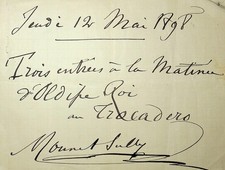 Jeudi 12 Mai 1898
Trois entrées à la Matinée
d'Œdipe Roi
au Trocadéro
Mounet Sully